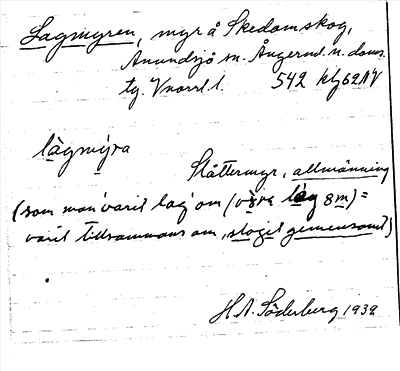 Lagmyren, myr å Skedomskog,
Anundsjö sn. Ångerml. n. doms.
tg. Vnorrl. l. 542 Klg 62 NV
làgmy̅ra
Slåttermyr, allmänning
(som man varit lag om (vàra làg 8m) =
varit tillsammans om, slogit gemensamt)
H. A. Söderberg 1939